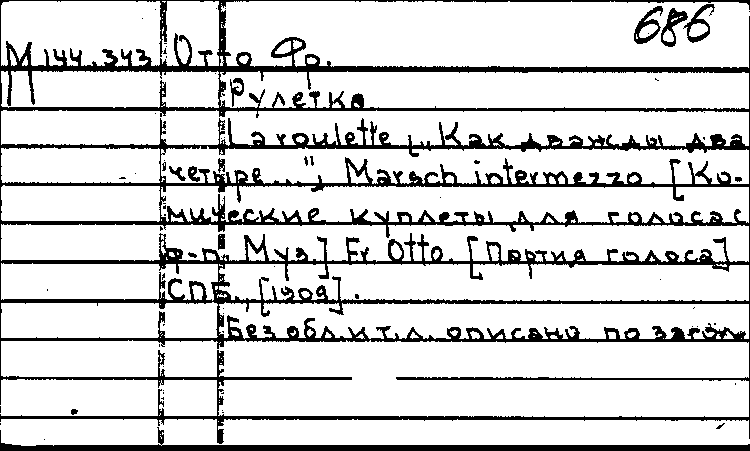 686
М 144.343 Отто, Фр.
Рулетка.
La roulette [„Как дважды два
четыре..."] Marsch intermezzo. [Ко-
мические куплеты для голоса с
ф-п. Муз.] Fr. Otto. [Партия голоса]
СПБ., [1909].
Без обл. и т.л. описано по заголв.